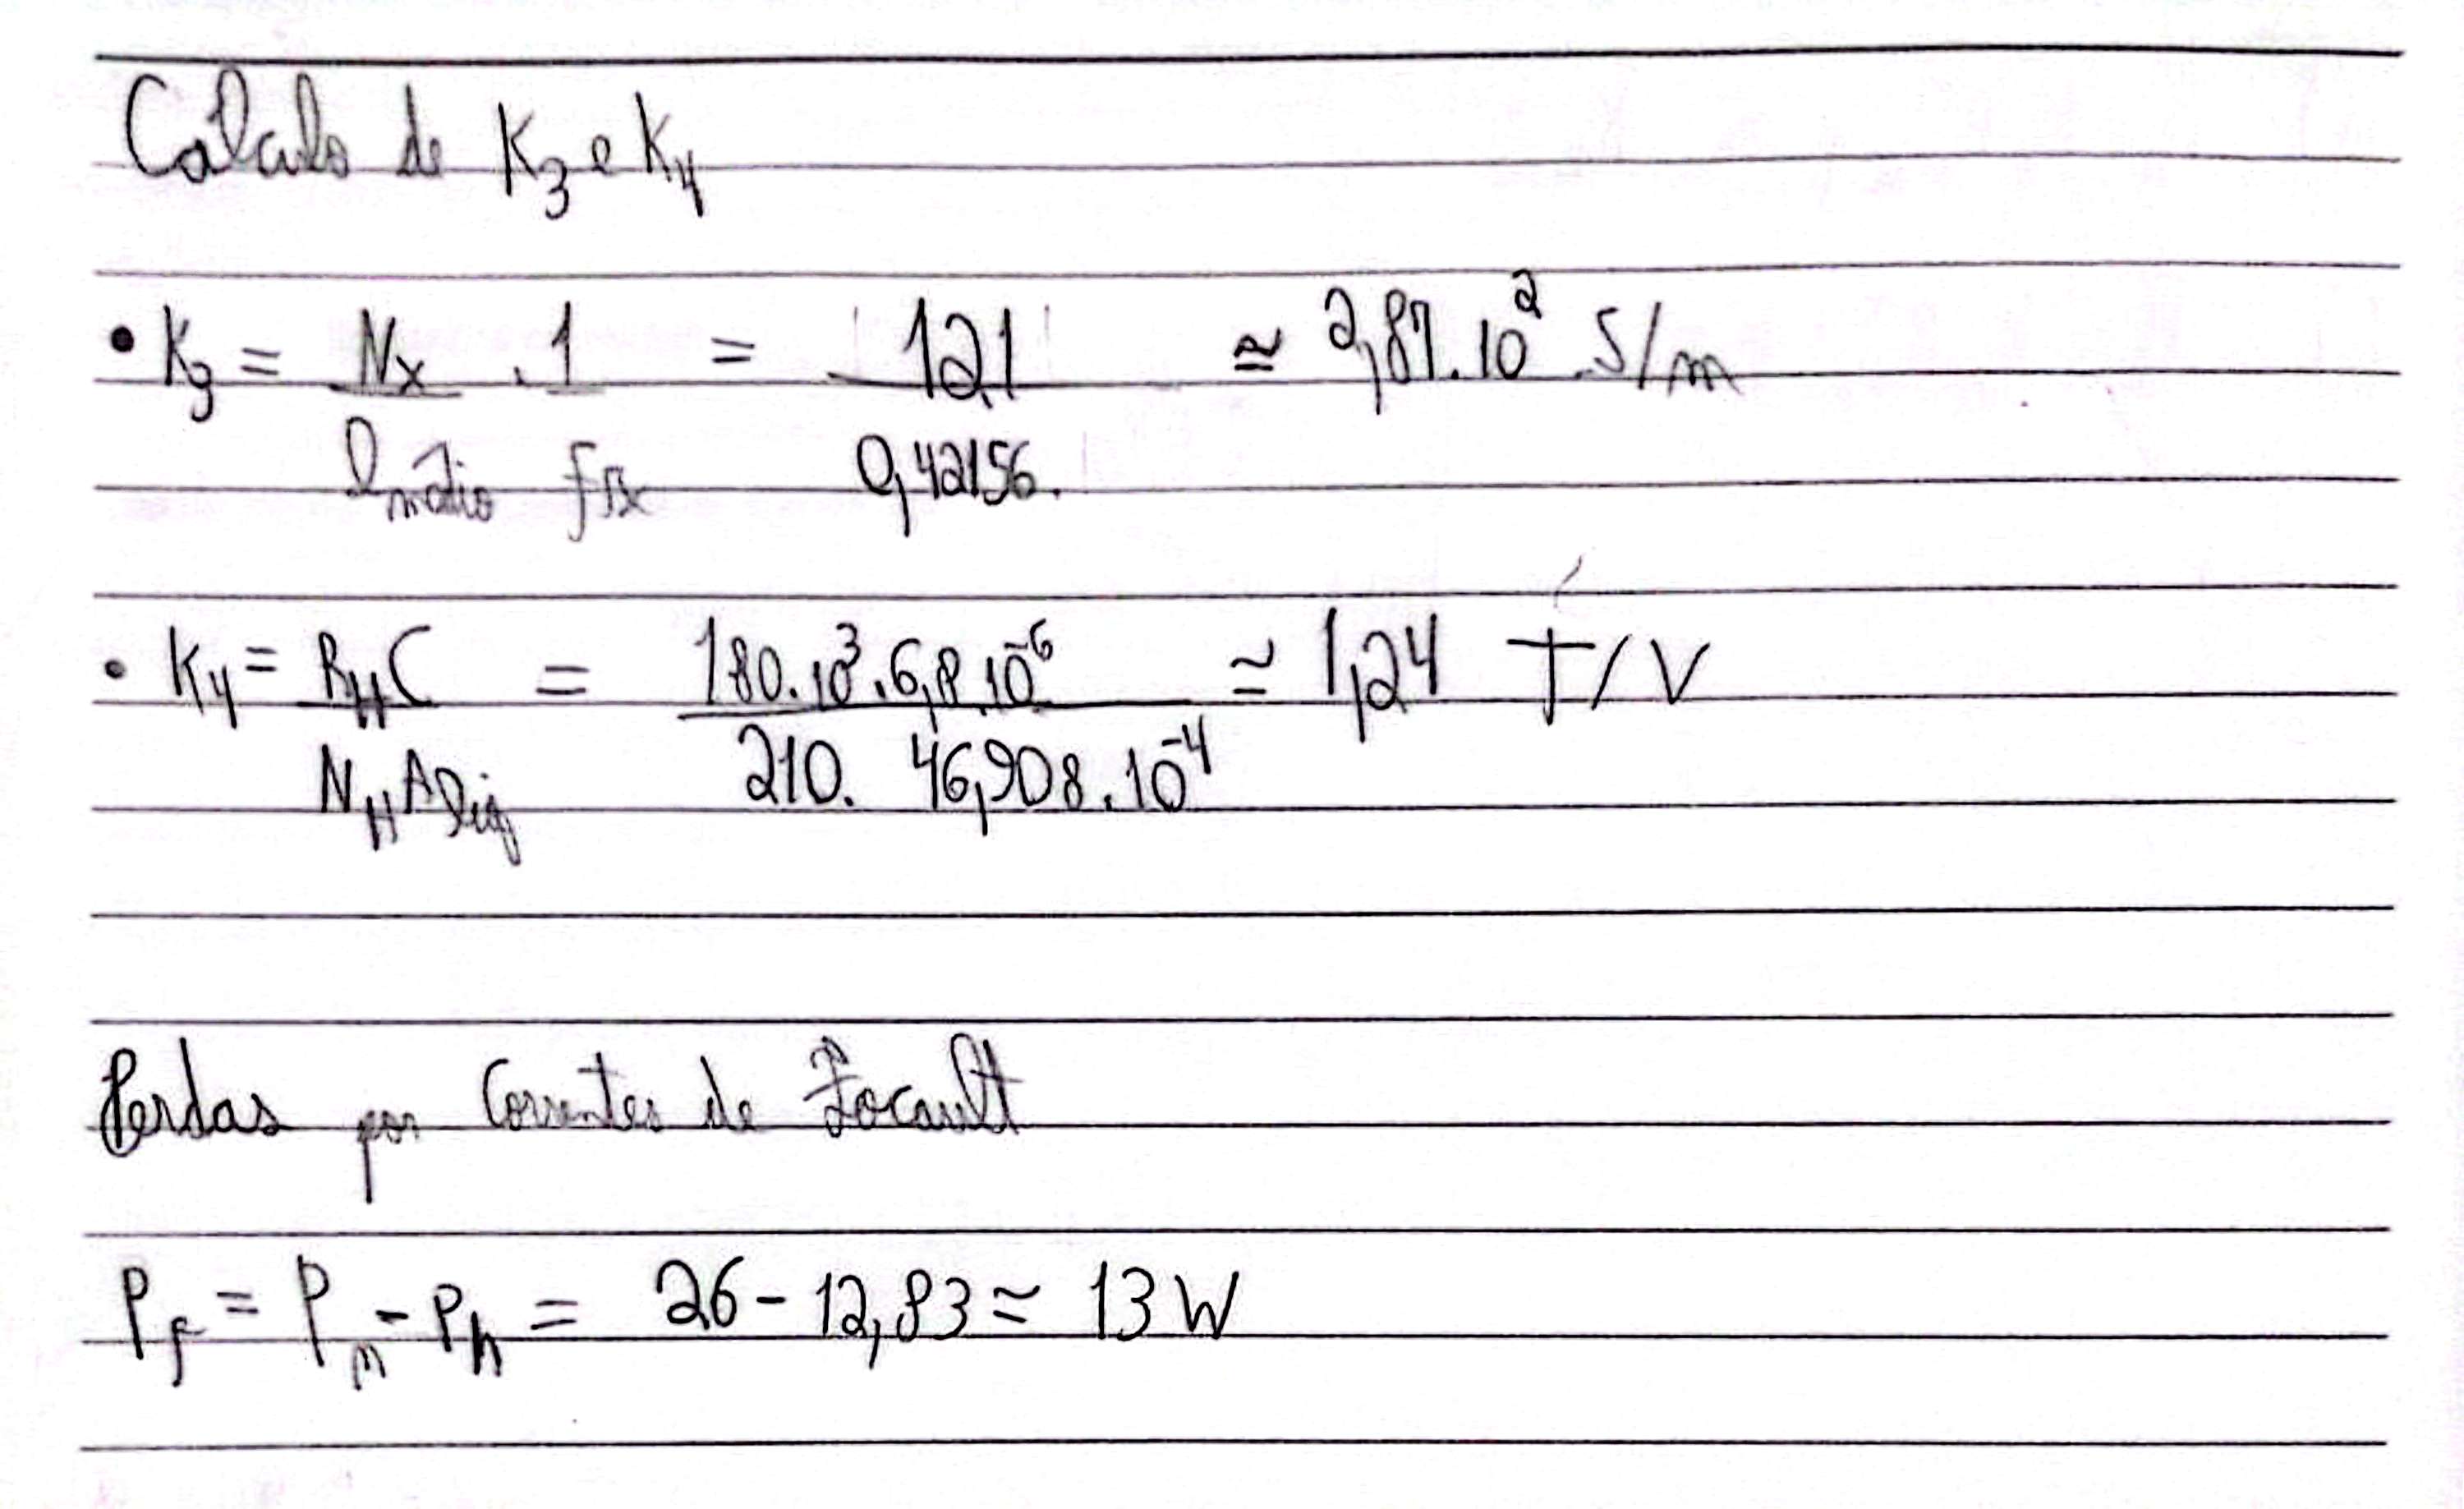 Cálculo de K₃ e K₄
• K₃ = Nx/lmédio . 1/fRx = 121/0,42156. ≃ 2,87.10² S/m
• K₄ = R_H C/N_H A_lig = 180.10³.6,8.10⁻⁶/210. 46,908.10⁻⁴ ≃ 1,24 T/V
Perdas por Correntes de Focault
P_f = P_m - P_h = 26 - 12,83 ≃ 13 W